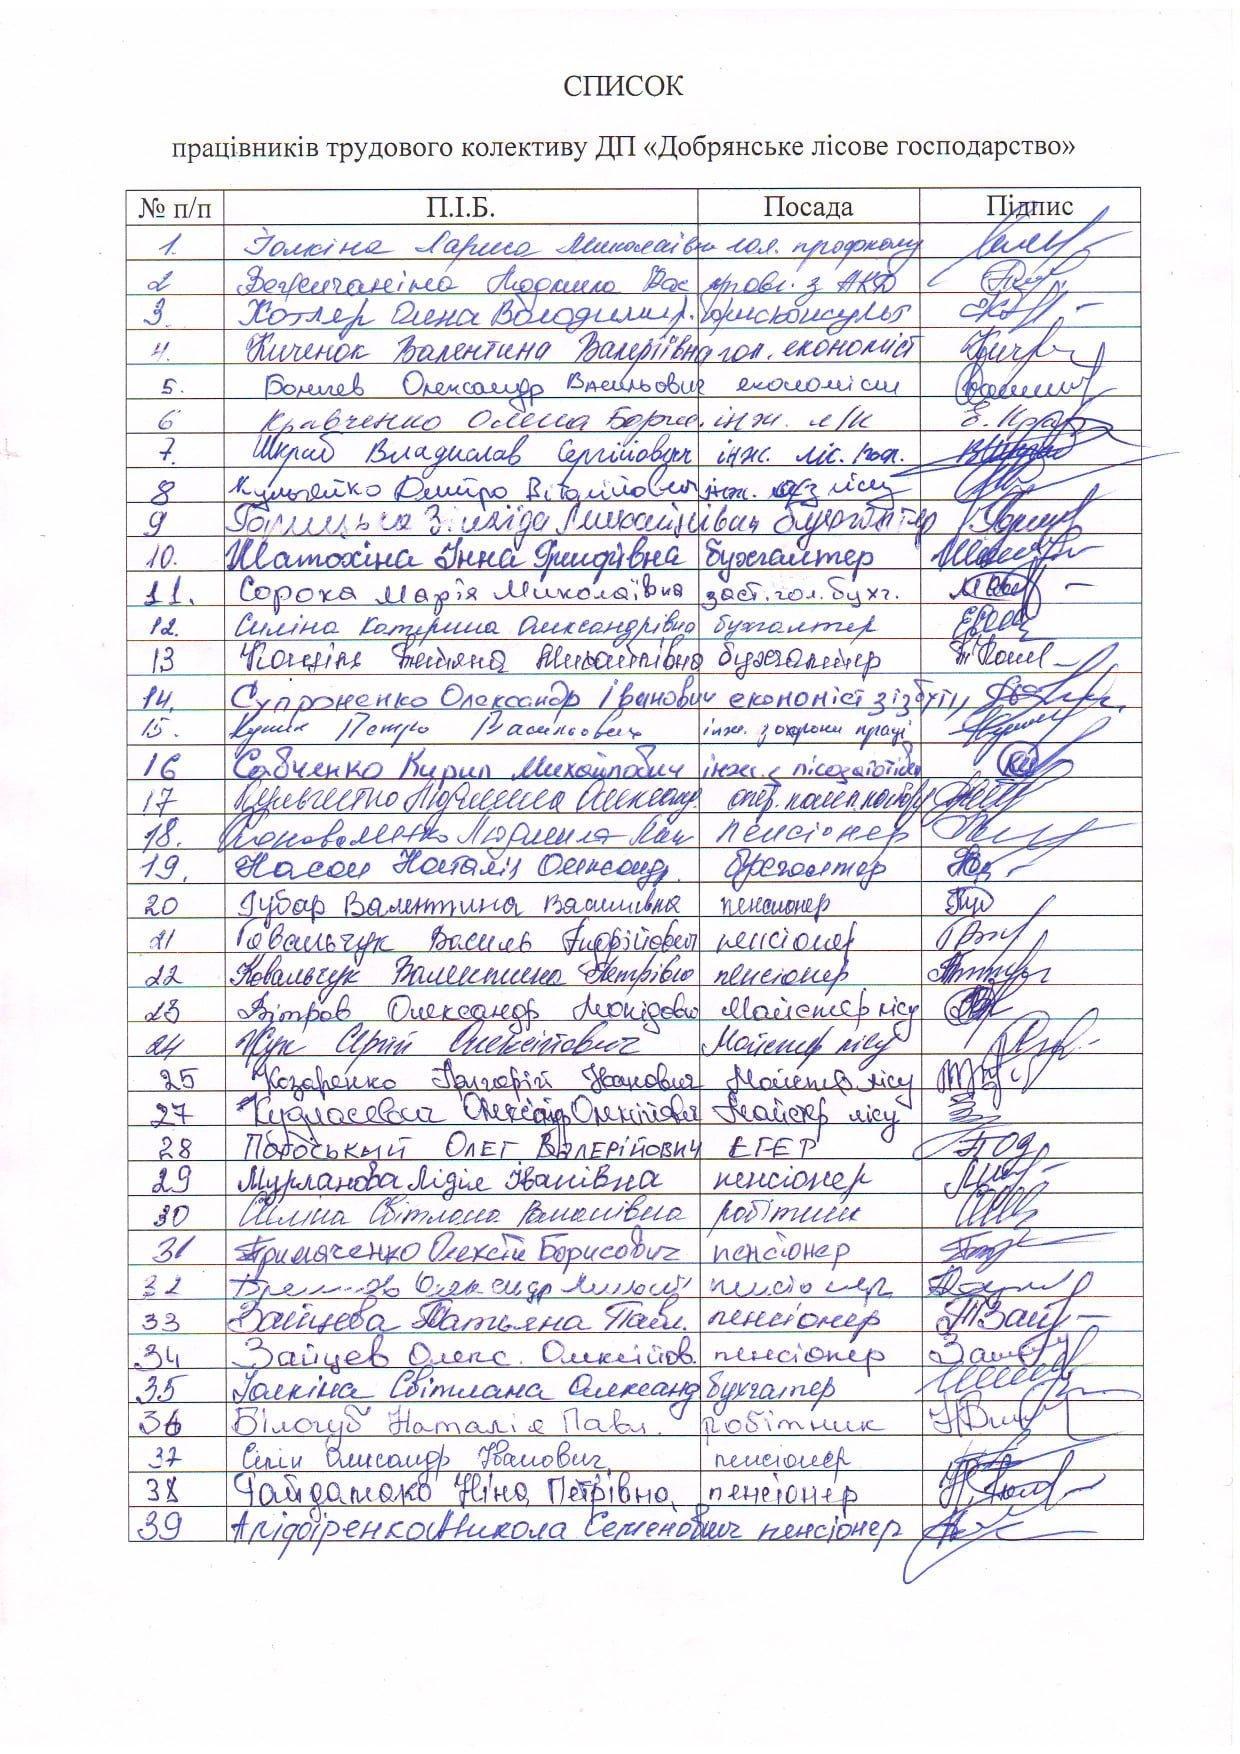 СПИСОК
працівників трудового колективу ДП «Добрянське лісове господарство»
№ п/п П.І.Б. Посада Підпис
1. Голкіна Лариса Миколаївн гол. профкому
2 Людмила Вас. пров. з АКД
3. Хотлер Олена Володимир. юрисконсульт
4. Киченок Валентина Валеріївна гол. економіст
5. Олександр Васильович економіст
6 Кравченко Олена Борис. інж. л/к Е. Крав
7. Шкраб Владислав Сергійович інж. ліс. госп.
8 Дмитро Віталійович інж. лісу
9 Зінаїда Михайлівна бухгалтер
10. Шатохіна Інна Григорівна бухгалтер
11. Сорока Марія Миколаївна заст. гол. бухг.
12. Силіна Катерина Олександрівна бухгалтер
13 Тетяна Михайлівна бухгалтер
14. Супроненко Олександр Іванович економіст зі збуту
15. Петро Васильович інж. з охорони праці
16 Савченко Кирил Михайлович інж. з лісозаготівлі
17 Людмила Олександ.
18. Коноваленко Людмила Мик пенсіонер
19. Насон Наталія Олександр. бухгалтер
20 Губар Валентина Василівна пенсионер Губ
21 Ковальчук Василь Андрійович пенсіонер
22 Ковальчук Валентина Петрівна пенсіонер
23 Вітров Олександр Леонідович Майстер лісу
24 Жук Сергій Олексійович Майстер лісу
25 Козаренко Григорій Іванович Майстер лісу
27 Олександр Олексійович Майстер лісу
28 Олег Валерійович ЕГЕР
29 Мурланова Лідія Іванівна пенсіонер
30 Силіна Світлана Романівна робітник
31 Примаченко Олексій Борисович пенсіонер
32 Олександр пенсіонер
33 Зайцева Татьяна Павл. пенсіонер ТЗай
34 Зайцев Олекс. Олексійов. пенсіонер
35 Голкіна Світлана Олександ бухгалтер
36 Білогуб Наталія Павл. робітник
37 Сілін Олександр Іванович пенсионер
38 Гайдамако Ніна Петрівна пенсіонер
39 Микола Семенович пенсіонер